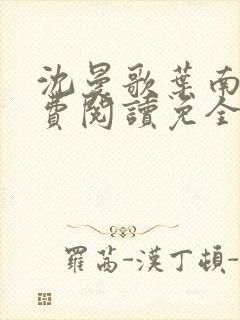 沈曼歌葉南
費閱讀免全
羅茜-漢丁頓-